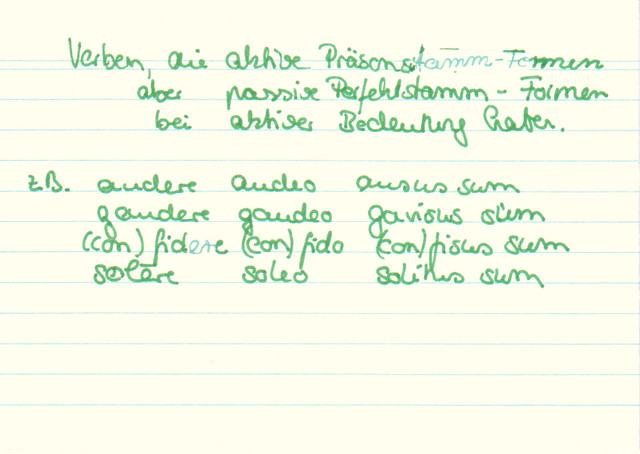 Verben, die aktive Präsensstamm-Formen
aber passive Perfektstamm-Formen
bei aktiver Bedeutung haben.
z.B. audere audeo ausus sum
gaudere gaudeo gavisus sum
(con)fidere (con)fido (con)fisus sum
solēre soleo solitus sum